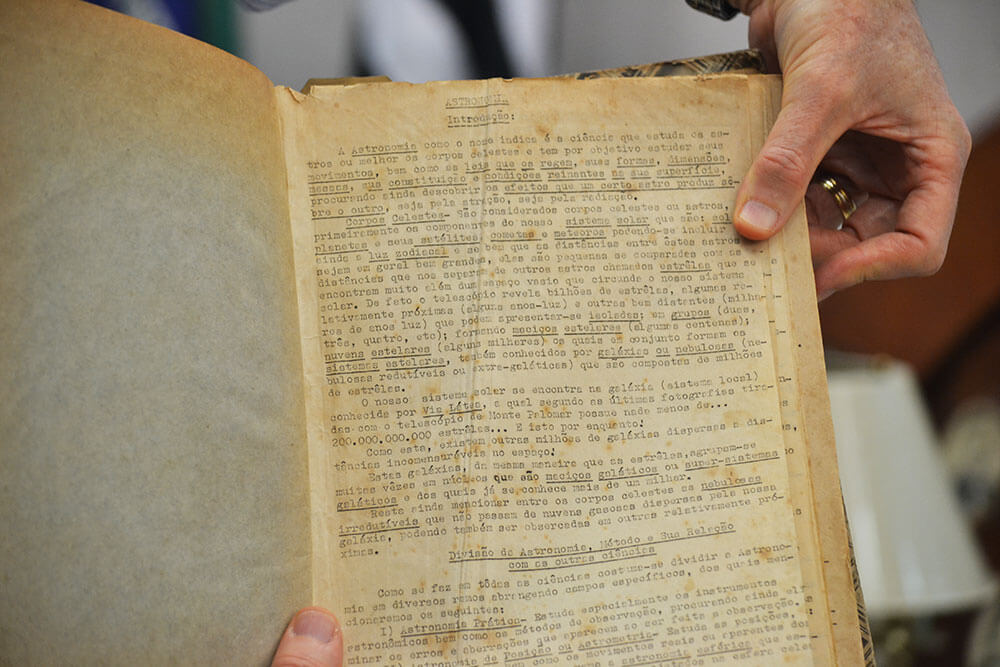 ASTRONOMIA
Introdução:
A Astronomia como o nome indica é a ciência que estuda os as-
tros ou melhor os corpos celestes e tem por objetivo estudar seus
movimentos, bem como as leis que os regem, suas formas, dimensões,
massas, sua constituição e condições reinantes na sua superfície,
procurando ainda descobrir os efeitos que um certo astro produz sô-
bre o outro, seja pela atração, seja pela radiação.
Corpos Celestes- São considerados corpos celestes ou astros,
primeiramente os componentes do nosso sistema solar que são: sol
planetas e seus satélites, cometas e meteoros podendo-se incluir
ainda a luz zodiacal e se bem que as distâncias entre êstes astros
sejam em geral bem grandes, elas são pequenas se comparadas com as
distâncias que nos separam de outros astros chamados estrêlas que se
encontram muito além dum espaço vasio que circunda o nosso sistema
solar. De fato o telescópio revela bilhões de estrêlas, algumas re-
lativamente próximas (alguns anos-luz) e outras bem distantes (milha-
res de anos luz) que podem apresentar-se isoladas; em grupos (duas,
três, quatro, etc); formando maciços estelares (algumas centenas);
nuvens estelares (alguns milheres) os quais em conjunto formam os
sistemas estelares, também conhecidos por galáxias ou nebulosas (ne-
bulosas redutíveis ou extra-galáticas) que são compostas de milhões
de estrêlas.
O nosso sistema solar se encontra na galáxia (sistema local)
conhecida por Via Látea, a qual segundo as últimas fotografias tira-
das com o telescópio de Monte Palomar possue nada menos de...
200.000.000.000 estrêlas... E isto por enquanto!
Como esta, existem outras milhões de galáxias dispersas a dis-
tâncias incomensuráveis no espaço!
Estas galáxias, da mesma maneira que as estrêlas, agrupam-se
muitas vêzes em núcleos que são maciços galáticos ou super-sistemas
galáticos e dos quais já se conhece mais de um milhar.
Resta ainda mencionar entre os corpos celestes as nebulosas
irredutíveis que não passam de nuvens gasosas dispersas pela nossa
galáxia, podendo também ser observadas em outras relativamente pró-
ximas.
Divisão da Astronomia, Método e Sua Relação
com as outras ciências
Como se faz em tôdas as ciências costuma-se dividir a Astrono-
mia em diversos ramos abrangendo campos específicos, dos quais men-
cionaremos os seguintes:
I) Astronomia Prática- Estuda especialmente os instrumentos
astronômicos bem como os métodos de observação, procurando ainda eli
minar os erros e aberrações que aparecem ao ser feita a observação.
Astronomia de Posição ou Astrometria- Estuda as posições,
como os movimentos reais ou aparentes dos
a astronomia esférica que es-
na esfera celes